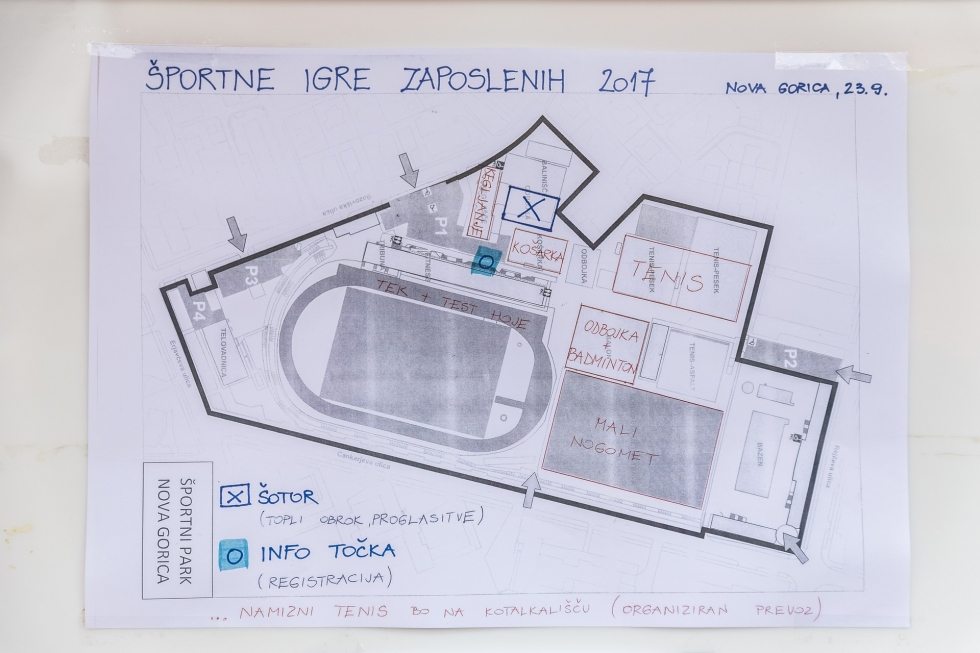 ŠPORTNE IGRE ZAPOSLENIH 2017
NOVA GORICA, 23.9.
P1
KEGLJANJE
KOŠARKA
ODBOJKA
TENIS
TENIS-PESEK
TENIS-PESEK
P3
P4
TRIBUNE
FITNES
TEK + TEST HOJE
TELOVADNICA
ODBOJKA
+
BADMINTON
TENIS-ASFALT
P2
MALI
NOGOMET
BAZEN
Cankarjeva ulica
Erjavčeva ulica
ŠPORTNI PARK
NOVA GORICA
ŠOTOR
(TOPLI OBROK, PROGLASITVE)
INFO TOČKA
(REGISTRACIJA)
... NAMIZNI TENIS BO NA KOTALKALIŠČU (ORGANIZIRAN PREVOZ)